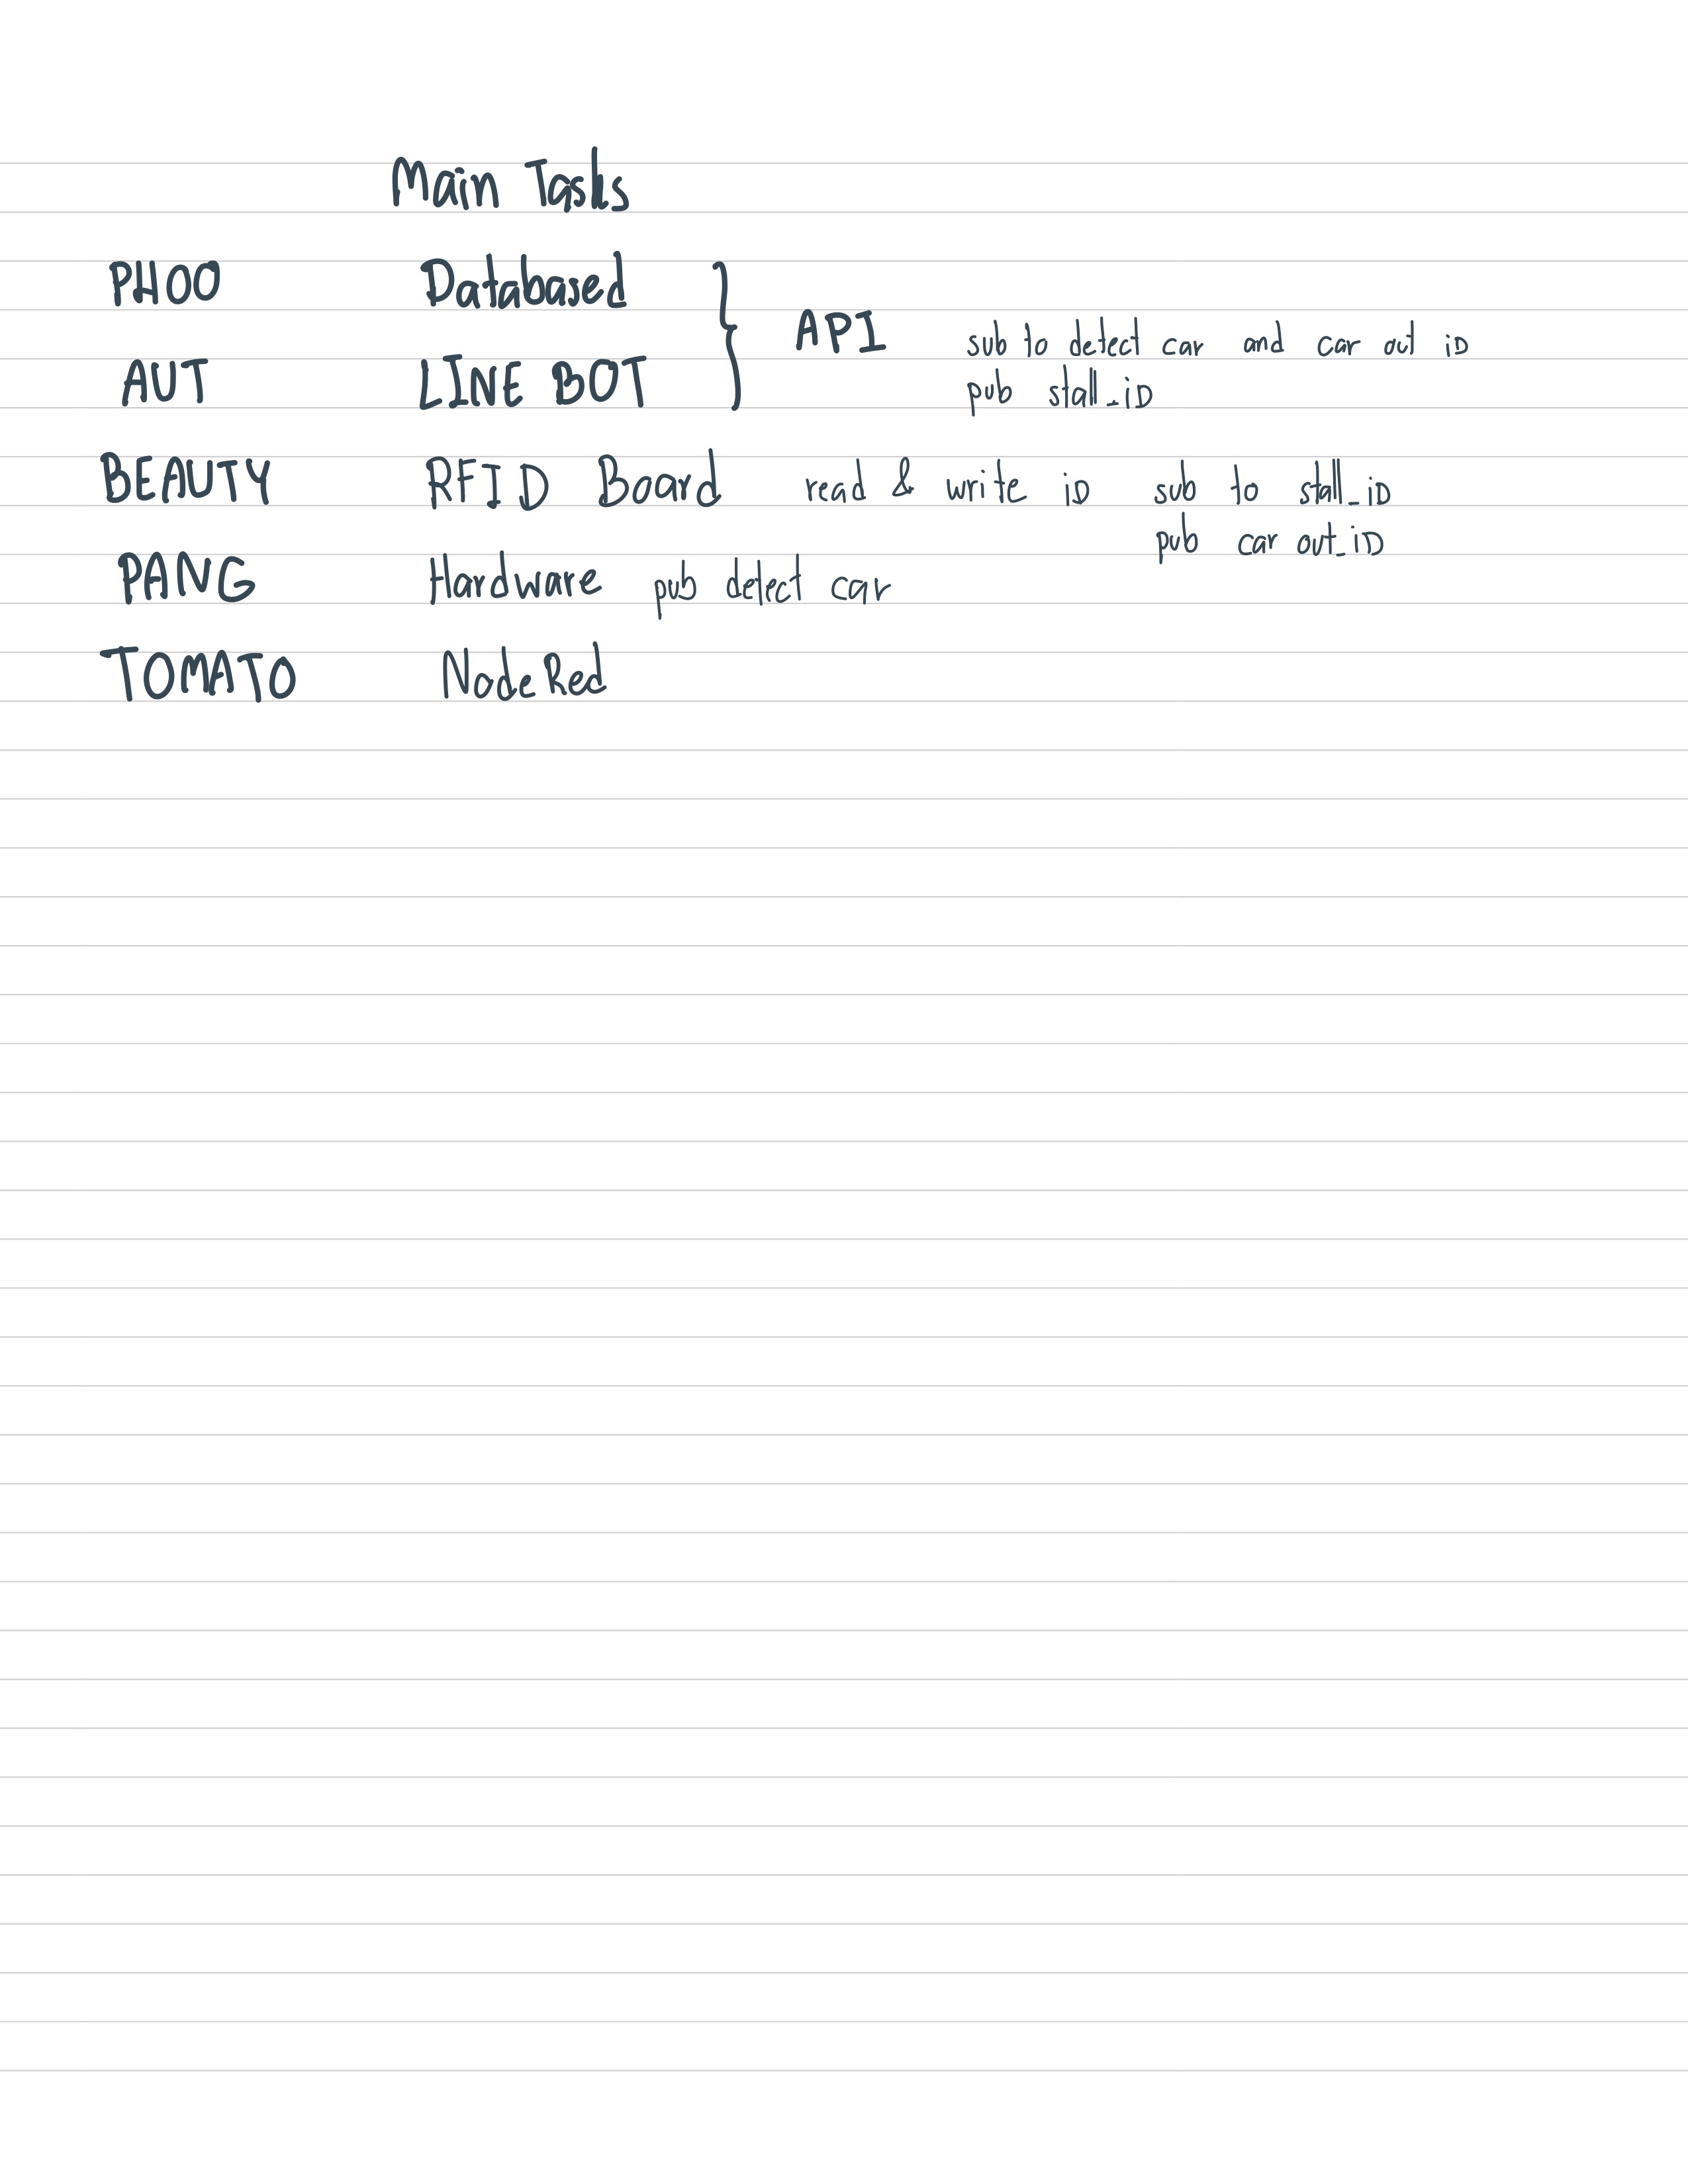 Main Tasks
PHOO Databased
API sub to detect car and car out iD
AUT LINE BOT pub stall_iD
BEAUTY RFID Board read & write iD sub to stall_iD
pub car out_iD
PANG Hardware pub detect car
TOMATO NodeRed